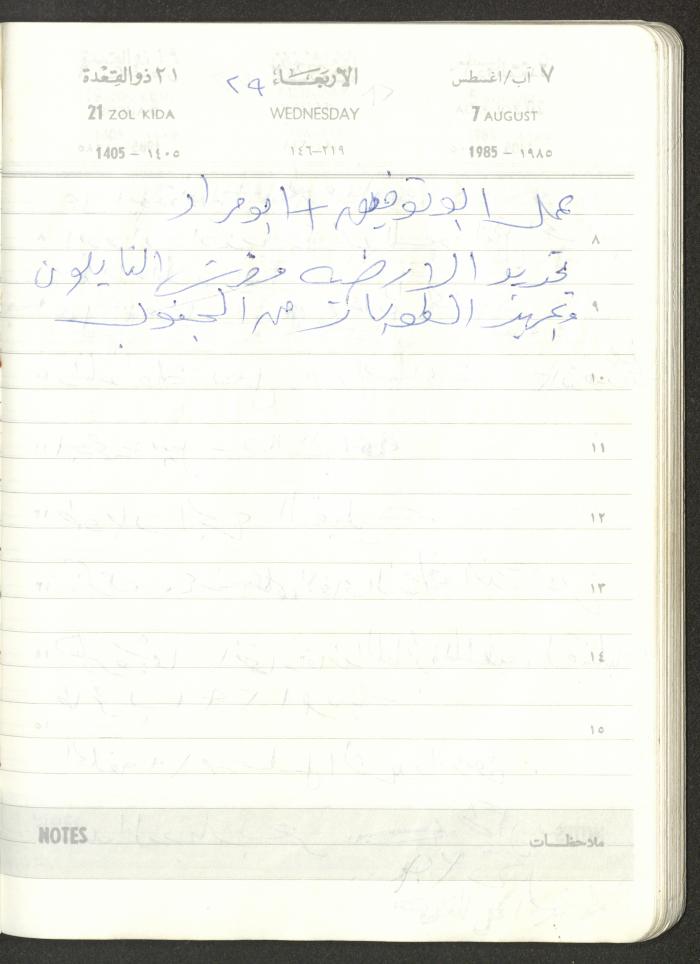 ٢١ ذوالقعدة الأربعاء ٧ آب/اغسطس
٢٩
21 ZOL KIDA WEDNESDAY 7 AUGUST
1405 - ١٤٠٥ ٢١٩-١٤٦ 1985 - ١٩٨٥
عمل ابو توفيق + ابو مراد
٨
تحديد الارضيه وفرش النايلون
٩
وتجهيز الطوبار من الجنوب
١٠
١١
١٢
١٣
١٤
١٥
NOTES ملاحظات